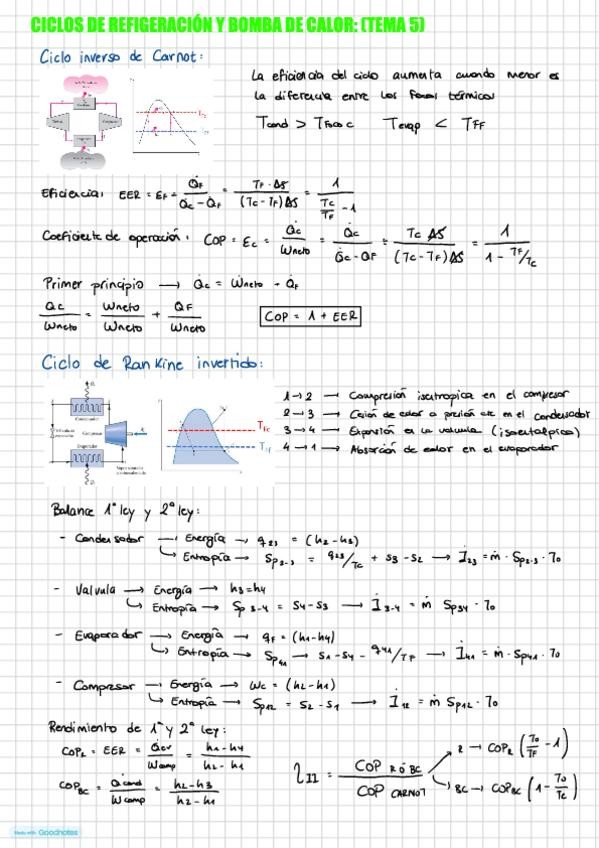 CICLOS DE REFIGERACIÓN Y BOMBA DE CALOR: (TEMA 5)
Ciclo inverso de Carnot:
La eficiencia del ciclo aumenta cuando menor es
la diferencia entre los focos térmicos
Tcond > TFoco c Tevap < TFF
TFc
Eficiencia: EER = EF = Q̇F / (Q̇c - Q̇F) = TF · ΔS / (Tc - TF) ΔS = 1 / (Tc/TF - 1)
Coeficiente de operación: COP = Ec = Q̇c / Ẇneto = Q̇c / (Q̇c - Q̇F) = Tc ΔS / (Tc - TF) ΔS = 1 / (1 - TF/Tc)
Primer principio → Q̇c = Ẇneto + Q̇F
Qc / Wneto = Wneto / Wneto + QF / Wneto COP = 1 + EER
Ciclo de Rankine invertido:
Condensador
Compresor
Evaporador
TFc
TFF
1→2 → Compresión isentropica en el compresor
2→3 → Cesion de calor a presión cte en el condensador
3→4 → Expansión en la valvula (isoentalpica)
4→1 → Absorción de calor en el evaporador
Balance 1ª ley y 2ª ley:
- Condensador → Energía → q23 = (h2-h3)
Entropía → Sp2-3 = q23/Tc + s3 - s2 → İ23 = ṁ · Sp2-3 · T0
- Valvula → Energía → h3=h4
Entropía → Sp 3-4 = S4-S3 → İ3-4 = ṁ Sp34 · T0
- Evaporador → Energía → qF = (h1-h4)
Entropía → Sp41 → S1-S4 - q41/TF → İ41 = ṁ · Sp41 · T0
- Compresor → Energía → Wc = (h2-h1)
Entropía → Sp12 = S2-S1 → İ12 = ṁ Sp12 · T0
Rendimiento de 1ª y 2ª ley:
COPR = EER = Q̇ev / Ẇcomp = h1-h4 / h2-h1
COPBC = Q̇cond / Ẇcomp = h2-h3 / h2-h1
ηII = COP R Ó BC / COP CARNOT
R → COPR (T0/TF - 1)
BC → COPBC (1 - T0/Tc)
Made with Goodnotes